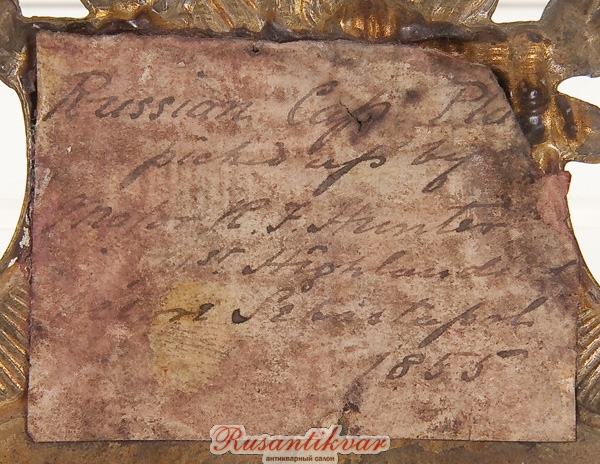 Russian Cap Pla
picked up by
Major H. F. Hunter
st. Highlanders
Sebastopol
1855
Rusantikvar
антикварный салон